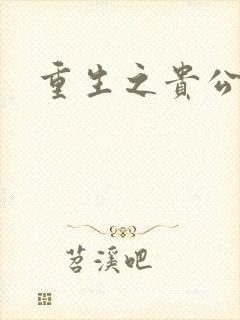 重生之貴公
苕溪吧